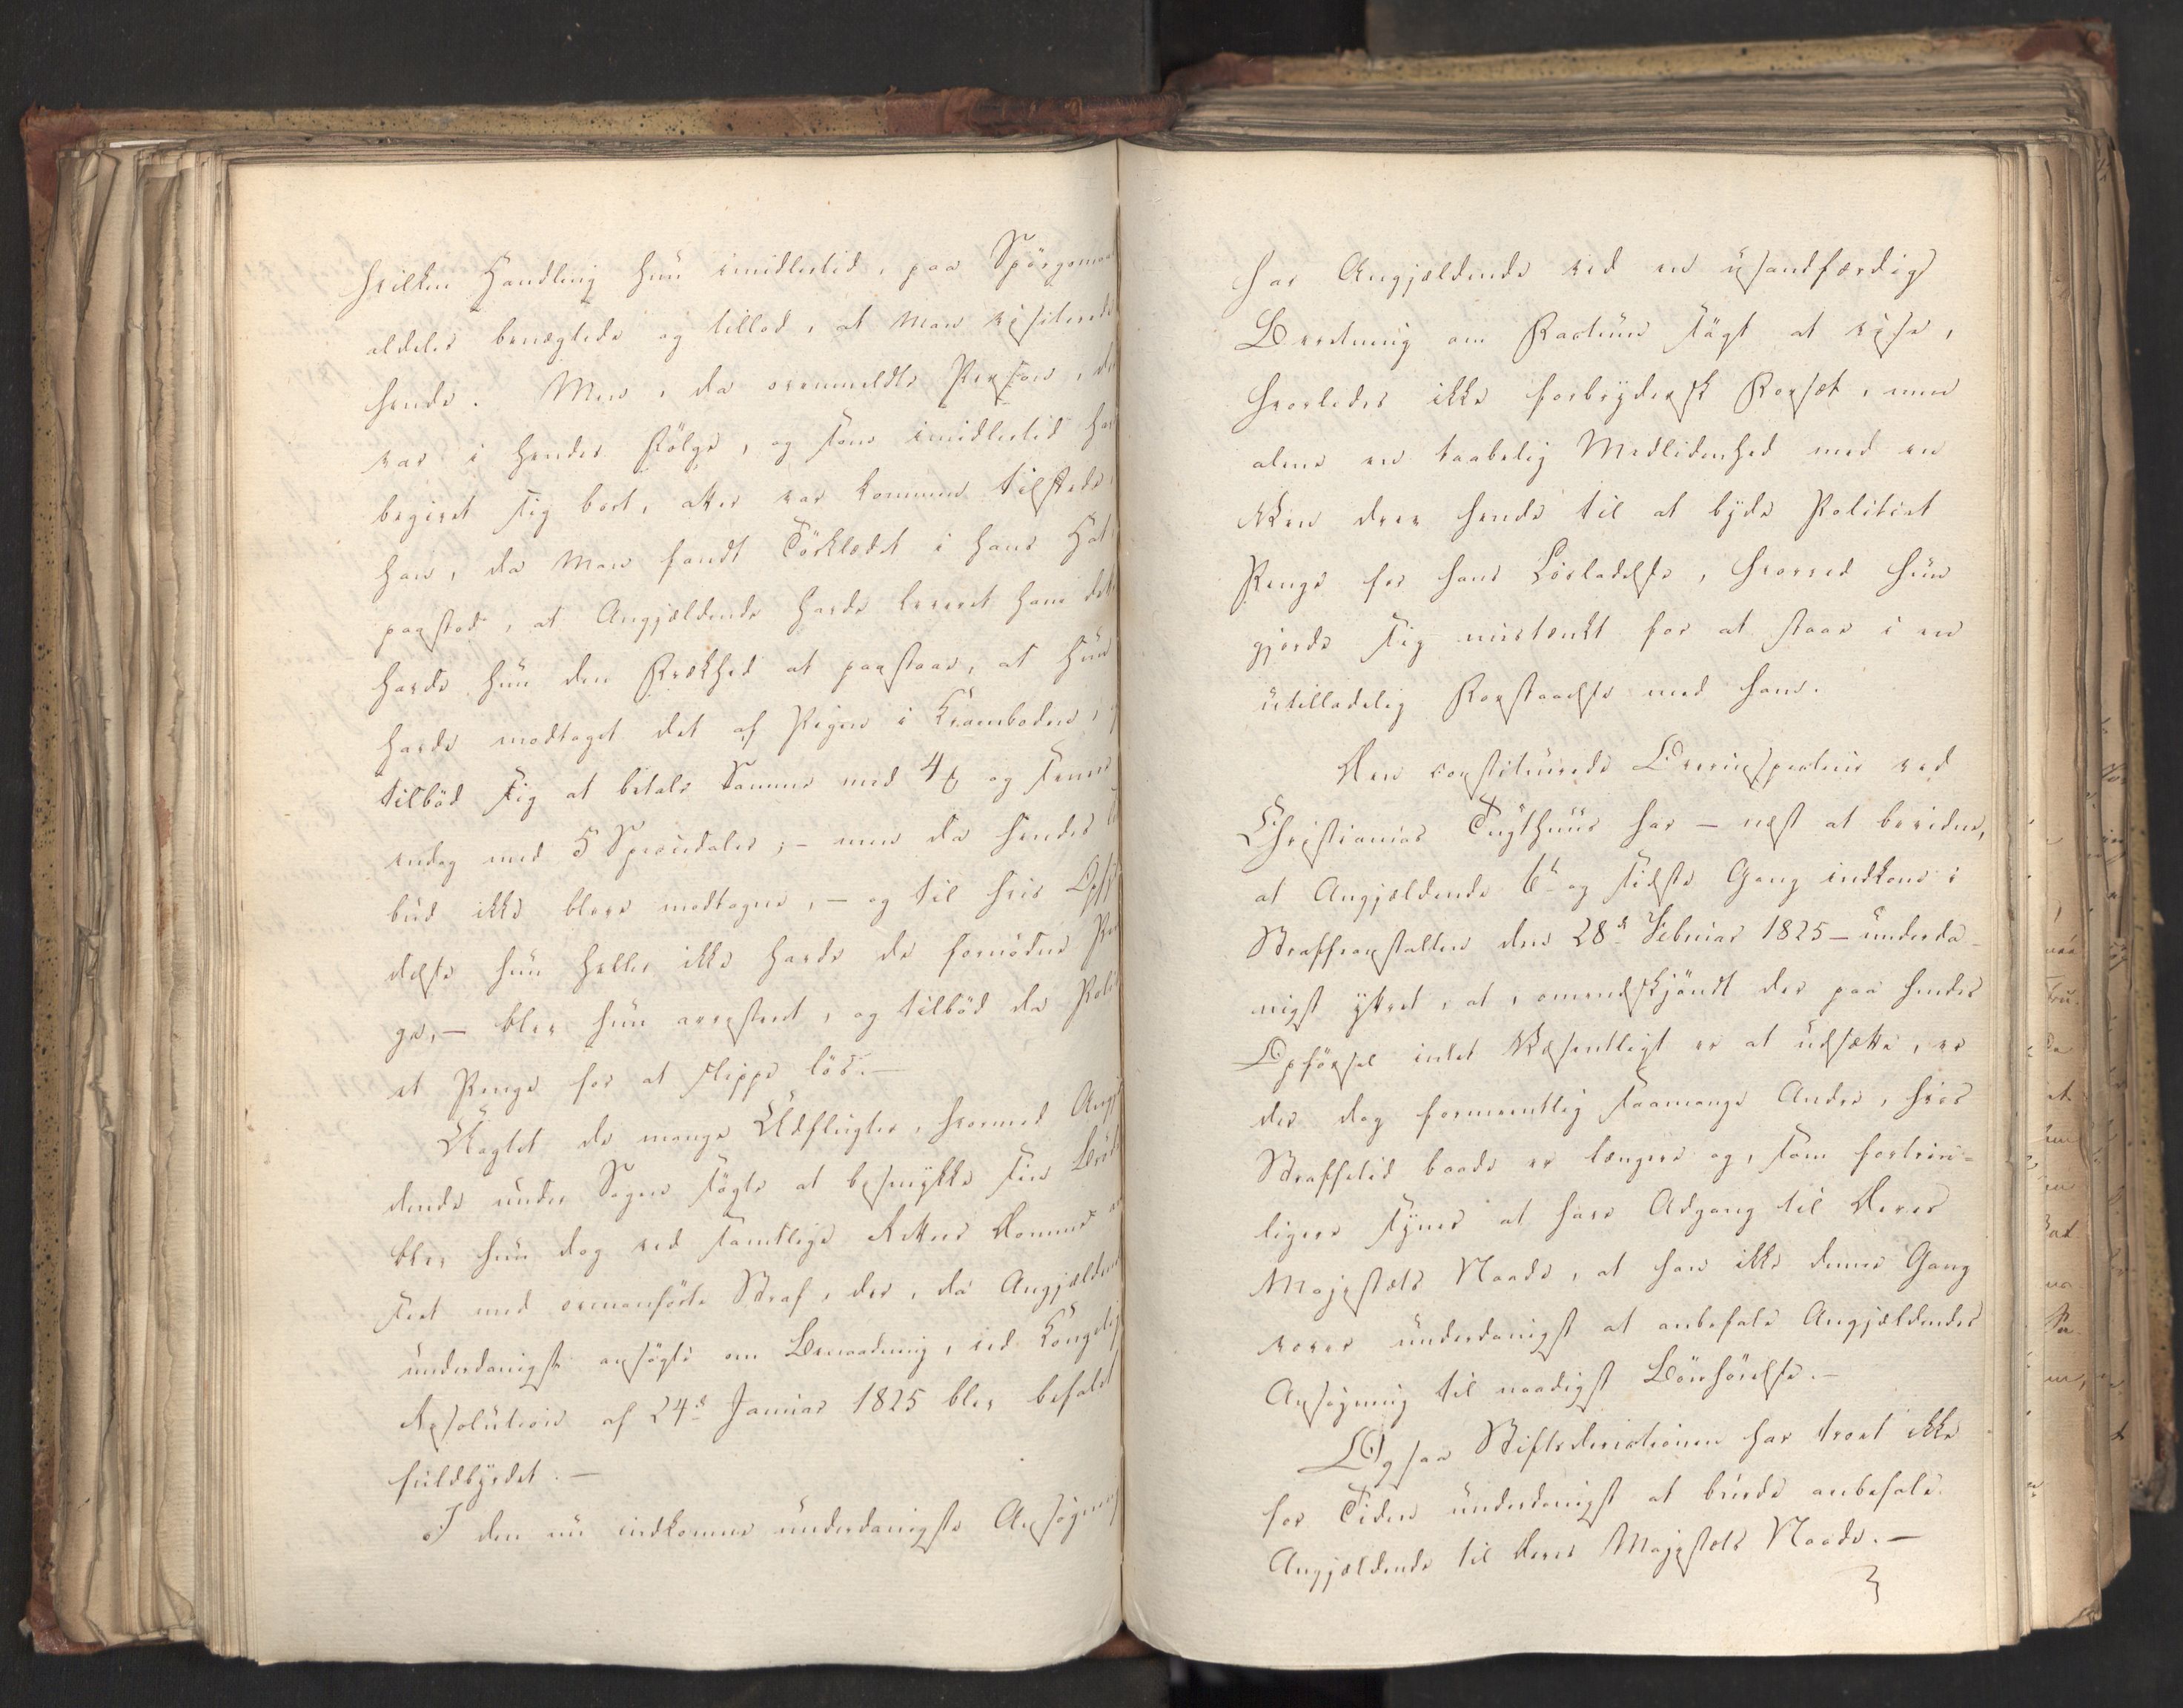 hvilken Handling hun imidlertid, paa Spörgsmaal
aldeles benægtede og tillod, at man visiterede
hende. Men, da ovenmeldte Person, der
var i hendes Fölge, og som imidlertid har
begivet sig bort, atter var kommen tilstede,
han, da man fandt Törklædet i hans Hat,
paastod, at Angjældende havde leveret ham det,
havde hun den Frækhed at paastaae, at hun
havde modtaget det af Pigen i Kramboden,
tilbød sig at betale Samme med 4 og senere
endog med 5 Speciedaler; – men da hendes
bud ikke bleve modtagne, – og til hvis Opfyl-
delse hun heller ikke havde de fornödne Pen-
ge, – blev hun arresteret, og tilböd da Politi-
et Penge for at slippe lös. –
Uagtet de mange Udflugter, hvormed Angjæl-
dende under Sagen sögte at besmykke sin
blev hun dog ved samtlige Retters Domme
seet med ovenanförte Straf, der, da Angjældende
underdanigst ansögte om Benaadning, ved Kongelig
Resolution af 24de Januar 1825 blev befalet
fuldbyrdet. –
I den nu indkomne underdanigste Ansøgning
har Angjældende ved en usandfærdig
Beretning om Factum sögt at vise,
hvorledes ikke forbrydersk Forsæt, men
alene en taabelig Medlidenhed med en
Ven drev hende til at byde Politiet
Penge for hans Lösladelse, hvorved hun
gjorde sig mistænkt for at staae i en
utilladelig Forstaaelse med ham.
Den constituerede Overinspecteur ved
Christianias Tugthuus har – næst at bevidne,
at Angjældende 6te og sidste Gang indkom i
Straffeanstalten den 28de Februar 1825 – underda-
nigst yttret, at, omendskjöndt der paa hendes
Opförsel intet Væsentligt er at udsætte, er
der dog formeentlig saamange Andre, hvis
Straffetid baade er længere og, som fortrin-
ligere synes at have Adgang til Deres
Majestæts Naade, at han ikke denne Gang
vover underdanigst at anbefale Angjældendes
Ansögning til naadigst Bönhörelse. –
Ogsaa Stiftsdirectionen har troet ikke
for Tiden underdanigst at burde anbefale
Angjældende til Deres Majestæts Naade. –